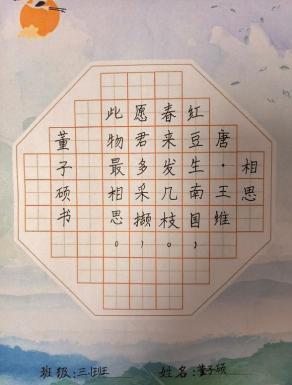 相思
唐·王维
红豆生南国，
春来发几枝。
愿君多采撷，
此物最相思。
董子硕书
班级:三1班 姓名:董子硕